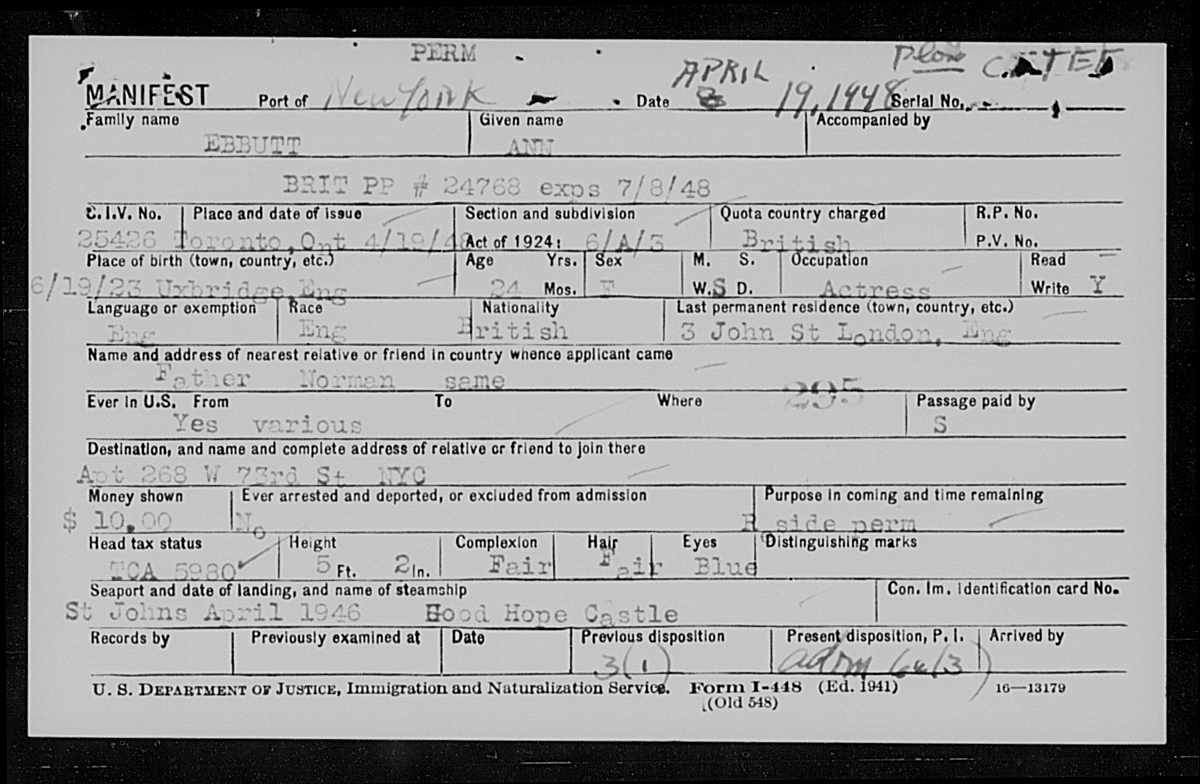 PERM
MANIFEST Port of New York Date APRIL 19, 1948 Serial No.
Family name Given name Accompanied by
EBBUTT ANN
BRIT PP # 24768 exps 7/8/48
C.I.V. No. Place and date of issue Section and subdivision Quota country charged R.P. No.
25426 Toronto, Ont 4/19/48 Act of 1924: 6/A/3 British P.V. No.
Place of birth (town, country, etc.) Age Yrs. Sex M. S. Occupation Read
6/19/23 Uxbridge, Eng 24 Mos. F W.S D. Actress Write Y
Language or exemption Race Nationality Last permanent residence (town, country, etc.)
Eng Eng British 3 John St London, Eng
Name and address of nearest relative or friend in country whence applicant came
Father Norman same
295
Ever in U.S. From To Where Passage paid by
Yes various S
Destination, and name and complete address of relative or friend to join there
Apt 268 W 73rd St NYC
Money shown Ever arrested and deported, or excluded from admission Purpose in coming and time remaining
$ 10.00 No R side perm
Head tax status Height Complexion Hair Eyes Distinguishing marks
TCA 5980 5 Ft. 2 In. Fair Fair Blue
Seaport and date of landing, and name of steamship Con. Im. Identification card No.
St Johns April 1946 Hood Hope Castle
Records by Previously examined at Date Previous disposition Present disposition, P. I. Arrived by
3(1) adm 6a(3)
U. S. DEPARTMENT OF JUSTICE, Immigration and Naturalization Service. Form I-448 (Ed. 1941) 16—13179
(Old 548)